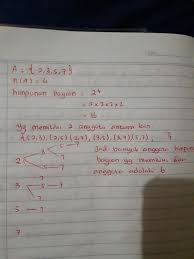 A = {2,3,5,7}
n(A) = 4
himpunan bagian : 2⁴
= 2 x 2 x 2 x 2
= 16
yg memiliki 2 anggota antara lain
{(2,3), (2,5) (2,7) (3,5) (3,7) (5,7)}
2 3 5 7
Jadi banyak anggota himpunan
bagian yg memiliki dua
anggota adalah 6
3 5 7
5 7
7